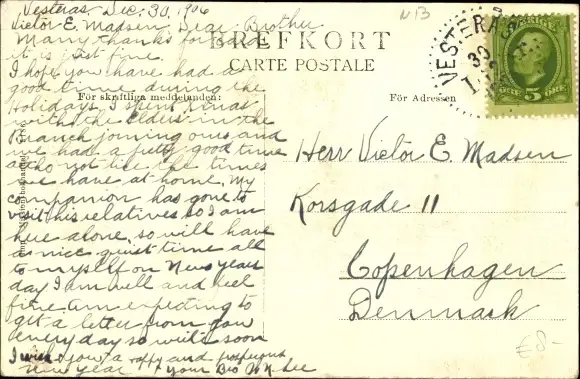 Vesteras, Dec. 30, 1906
Victor E. Madsen, Dear Brother
Many thanks for card
it is just fine.
I hope you have had a
good time during the
Holidays, I spent Xmas
with the Elders in the
Branch joining ours and
we had a pretty good time
altho not like the times
we have at home. My
companion has gone to
visit his relatives so I am
here alone, so will have
a nice quiet time all
to myself on New Years
day I am well and feel
fine am expecting to
get a letter from you
every day so will soon
I wish you a happy and prosperous
New year your Bro
BREFKORT
CARTE POSTALE
För skriftliga meddelanden:
För Adressen
NB
VESTERÅS
30
SVERIGE
ÖRE 5 ÖRE
Herr Victor E. Madsen
Korsgade 11
Copenhagen
Denmark
€8-